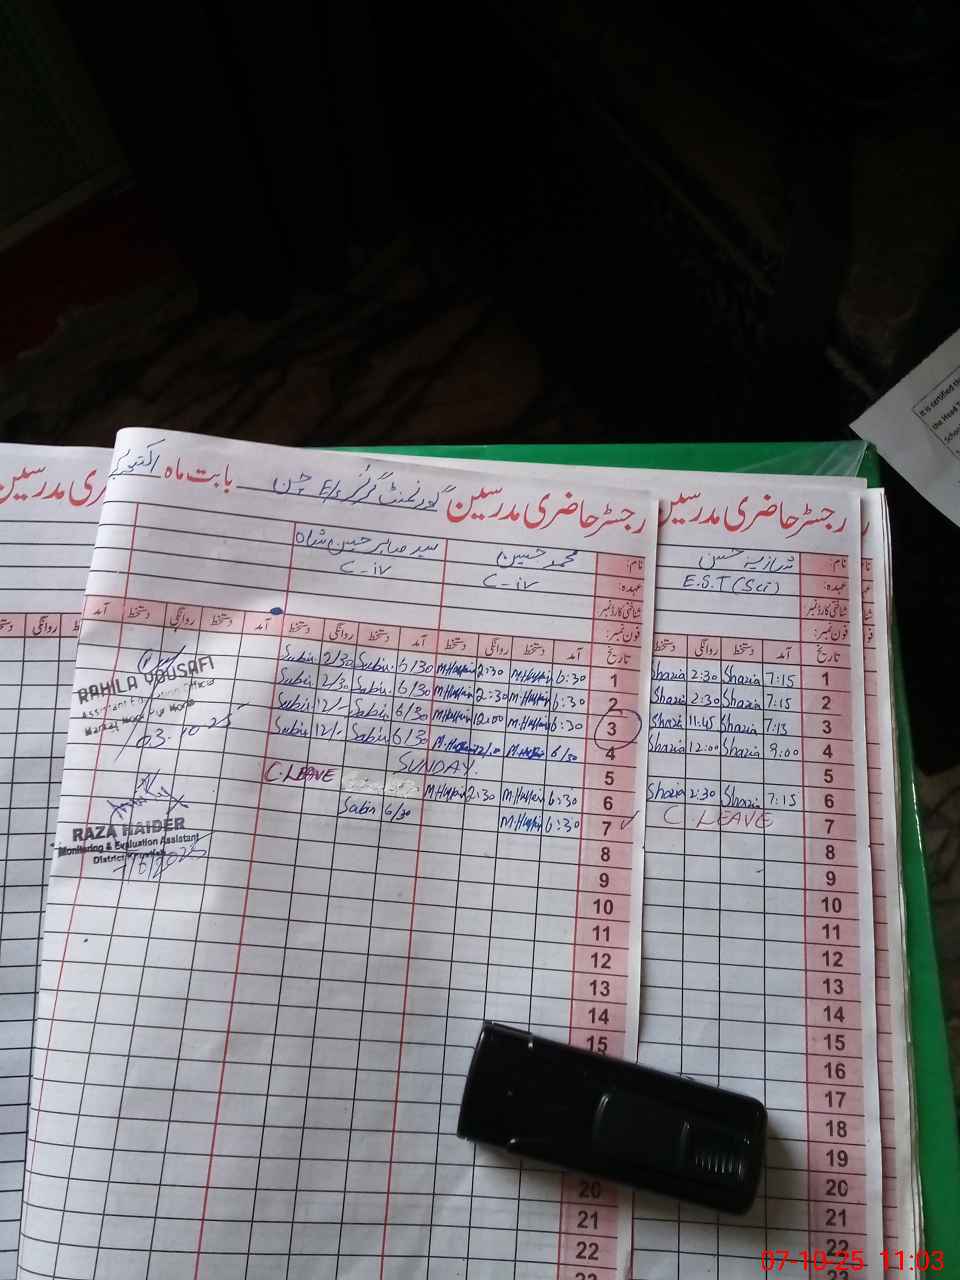 رجسٹر حاضری مدرسین گورنمنٹ گرلز E/S بابت ماہ اکتوبر
نام: محمد حسین سید صابر حسین شاہ
عہدہ: C-iv C-iv
شناختی کارڈ نمبر:
فون نمبر:
تاریخ آمد دستخط روانگی دستخط آمد دستخط روانگی دستخط آمد دستخط روانگی دستخط آمد
1 6:30 2:30 6/30 Sabir 2/30 Sabir
2 6:30 2:30 6/30 Sabir 2/30 Sabir
3 6:30 12:00 6/30 Sabir 12/- Sabir
4 6/30 12/0 6/30 Sabir 12/- Sabir
5 SUNDAY.
6 6:30 2:30 C.LEAVE
7 6:30 6/30 Sabir
8
9
10
11
12
13
14
15
20
21
22
23
RAHILA YOUSAFI
Assistant Education Officer
03-10-2025
RAZA HAIDER
Monitoring & Evaluation Assistant
District
7/10/2025
رجسٹر حاضری مدرسین
نام:
عہدہ: E.S.T (Sci)
شناختی کارڈ نمبر:
فون نمبر:
تاریخ آمد دستخط روانگی دستخط
1 7:15 Shazia 2:30 Shazia
2 7:15 Shazia 2:30 Shazia
3 7:15 Shazia 11:45 Shazia
4 9:00 Shazia 12:00 Shazia
5
6 7:15 Shazia 2:30 Shazia
7 C.LEAVE
8
9
10
11
12
13
14
15
16
17
18
19
20
21
22
23
It is certified
the Head
07-10-25 11:03